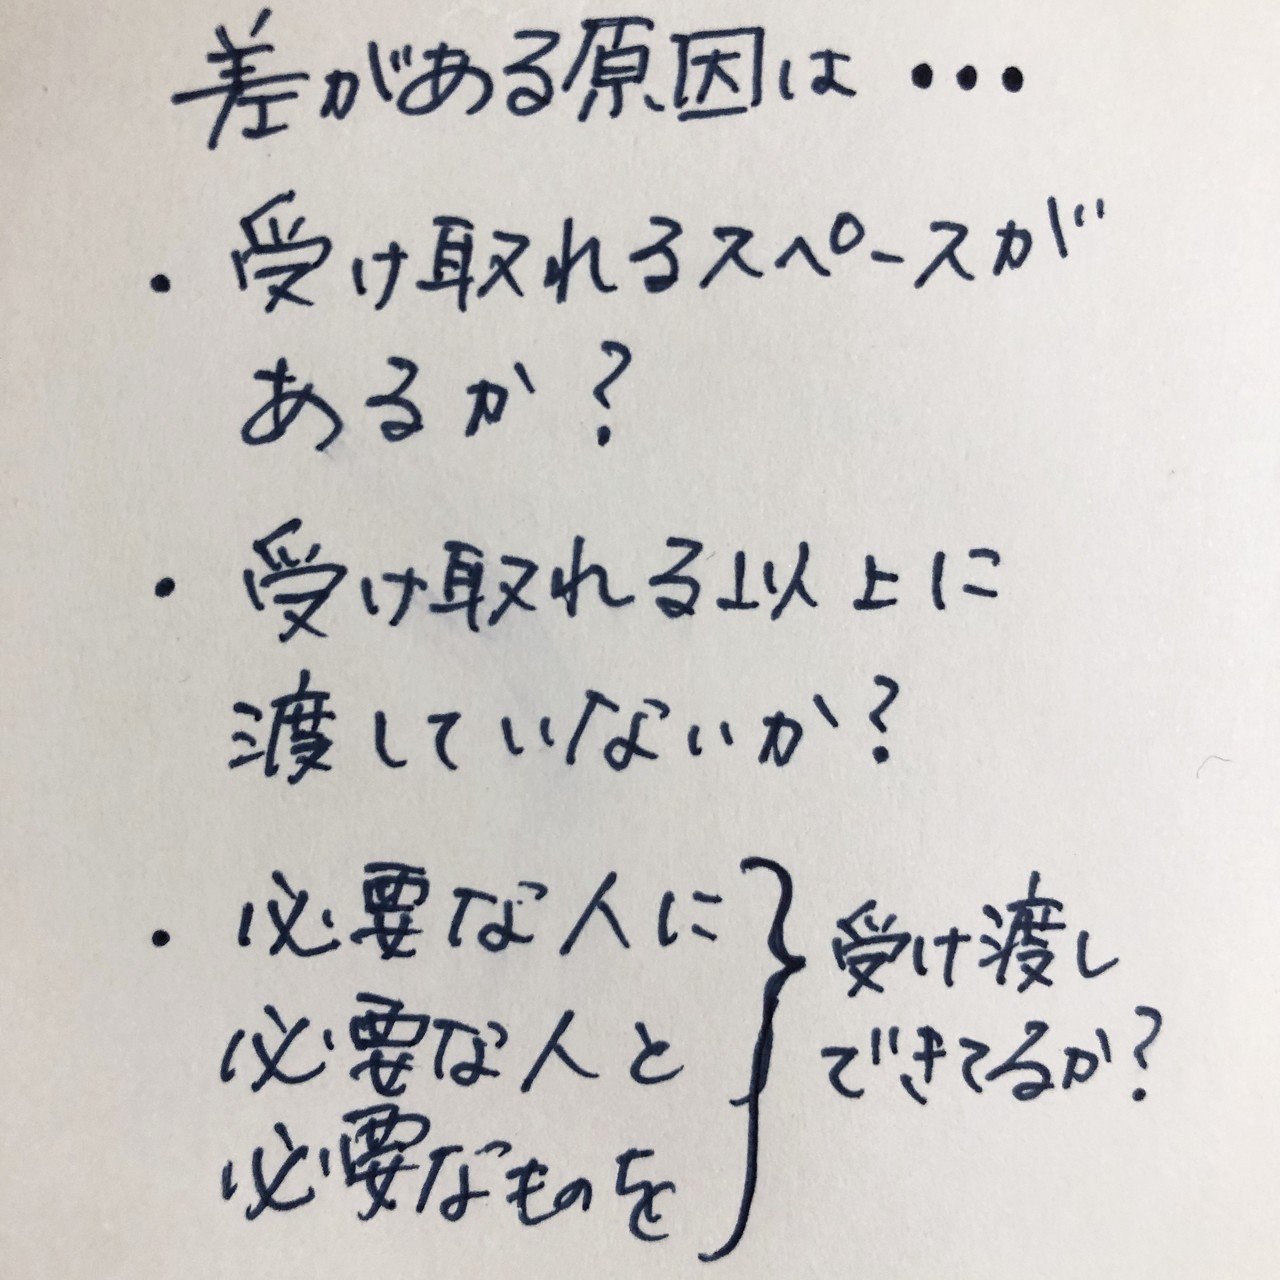 差がある原因は・・・
・受け取れるスペースが
あるか?
・受け取れる以上に
渡していないか?
・必要な人に
必要な人と
必要なものを
受け渡し
できてるか?